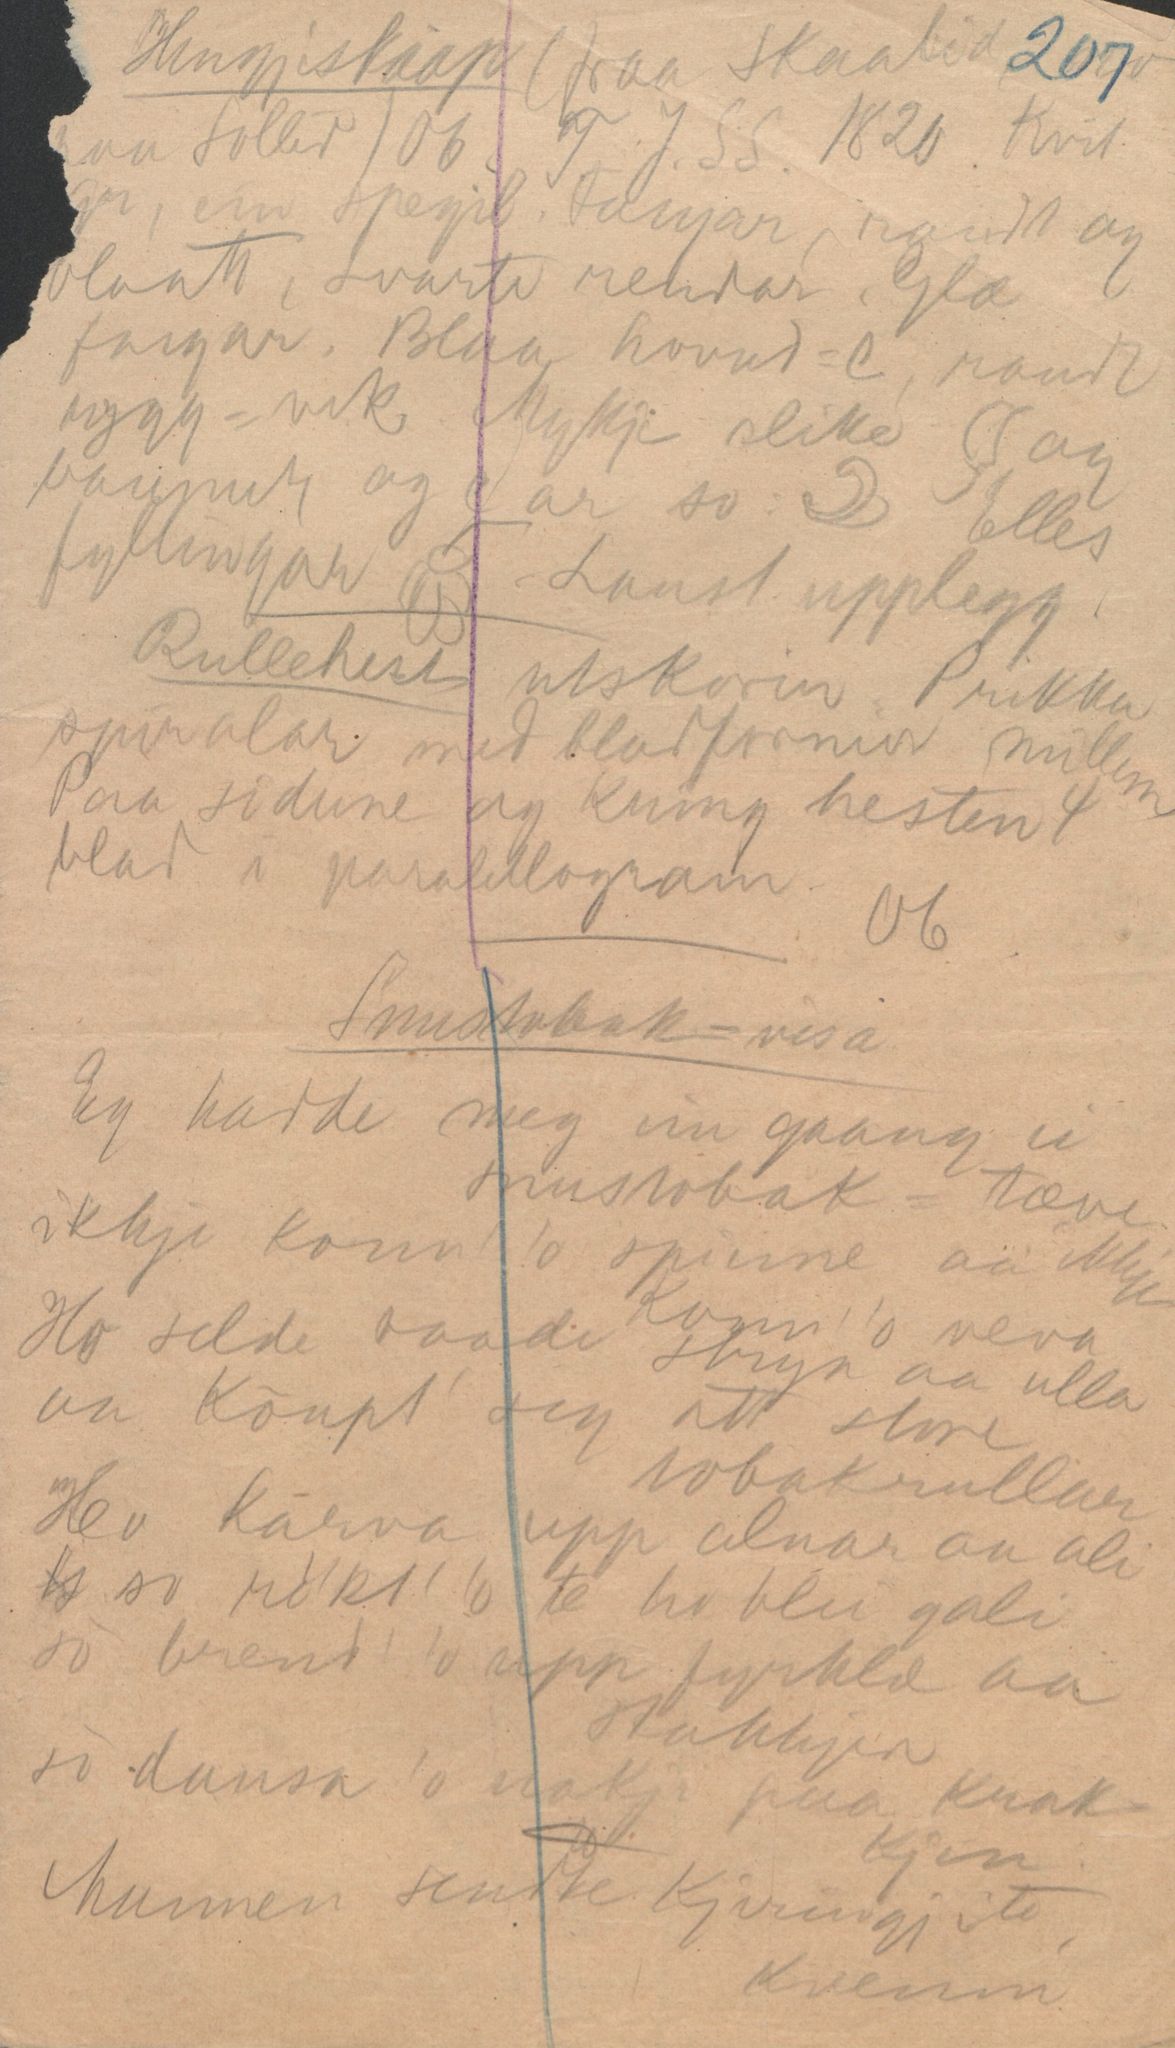 207
Hengjiskåap (fraa Skaalid,
Sollid) Ob. T. J. S S. 1820. Kvit
ein spegil. Fargar, raudt og
blaatt, svarte rendar. Glæ
fargar. Blaa hovud = C, raudt
rygg = vek. Mykji slike og
og C ar so: Elles
fyllingar Laust upplegg.
Rullehest utskorin. Prikka
spiralar med bladformir millom
Paa sidune og kring hesten 4
blad i paralellogram.
Ob
Snustobak = visa
Eg hadde meg ein gaang ei
snustobak = tæve
ikkje konn' 'o spinne aa ikkje
konn' 'o veva
Ho selde baade stryn aa ulla
aa kõupt' seg ått store
tobakrullar
Ho kårva upp alnar aa ali
so rõkt' 'o te ho blei gali
so brend' 'o upp fyrklæ aa
stakkjen
so dansa 'o nakji paa krak-
kjen.
Mannen sendte kjeringji te
kvenn